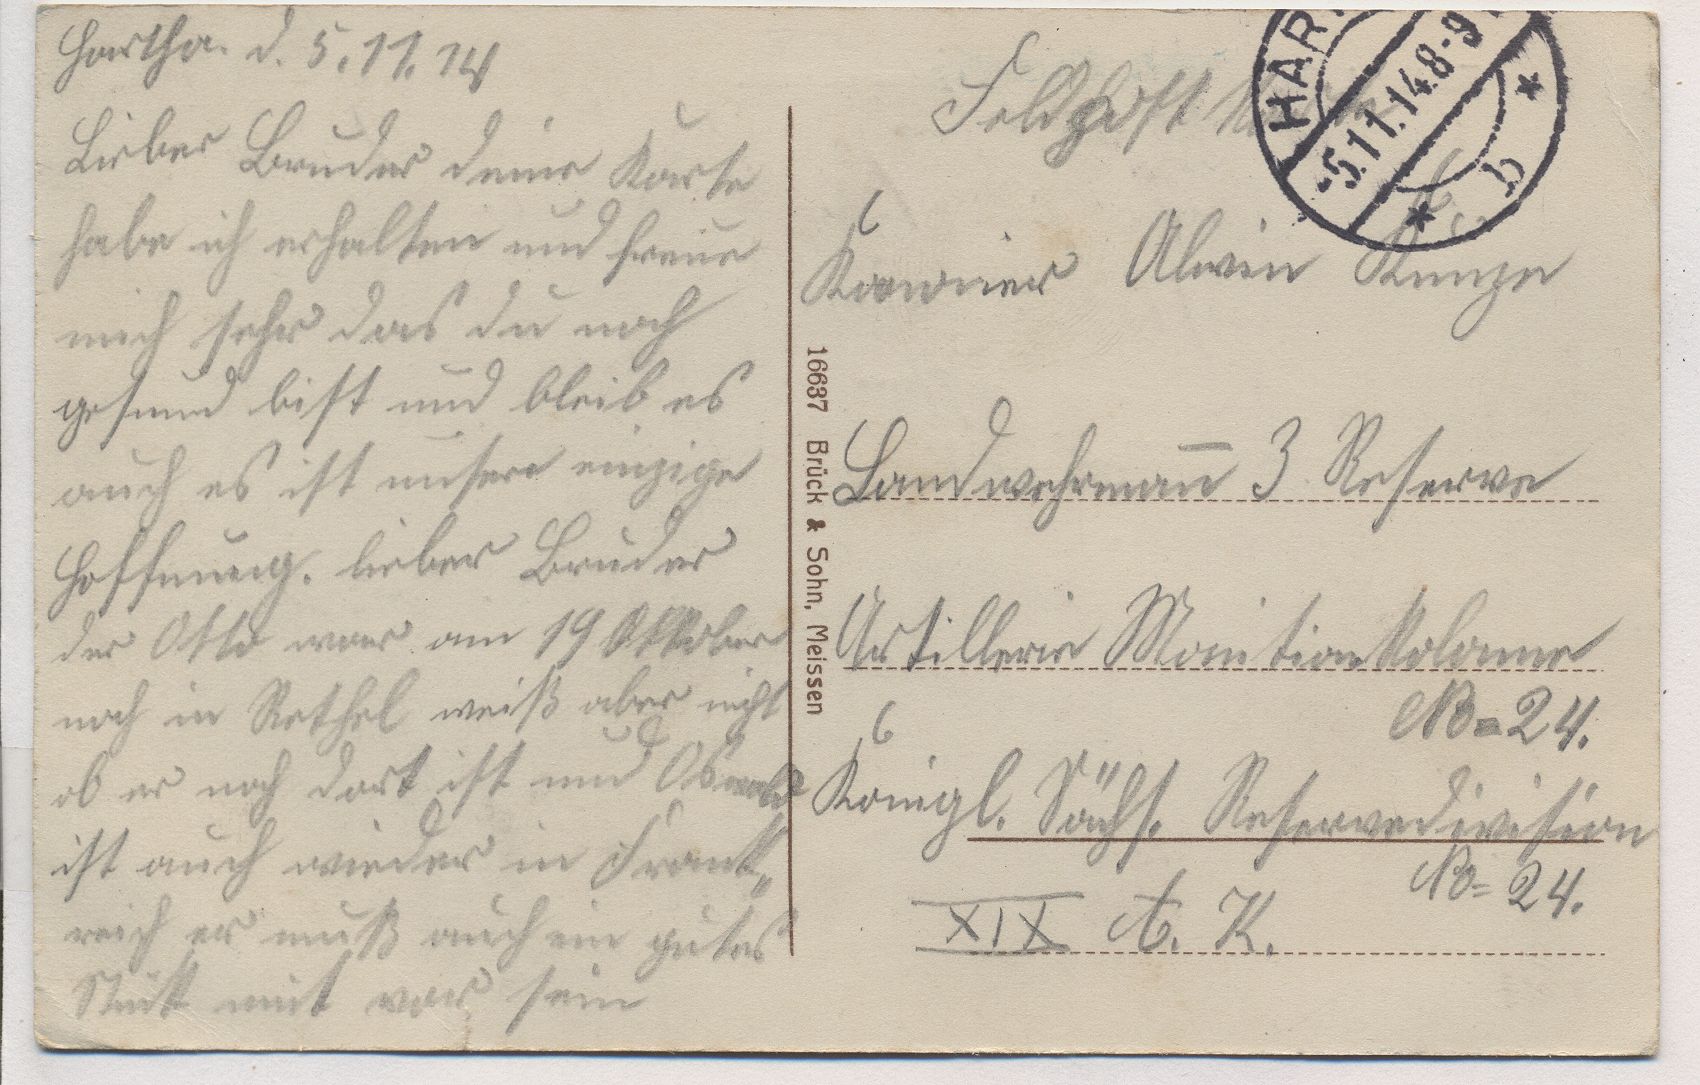 Hartha. d. 5.11.14
Lieber Bruder deine Karte
habe ich erhalten und freue
mich sehr das du noch
gesund bist und bleib es
auch es ist unsere einzige
Hoffnung. lieber Bruder
der Otto war am 19 Oktober
noch in Rethel weiß aber nicht
ob er noch dort ist und Oswald
ist auch wieder in Frank„
reich er muß auch ein gutes
Stük mit vor sein
16637 Brück & Sohn, Meissen
HAR
-5.11.14.8-9
* b *
Feldpost
Kanonier Alwin Kunze
Landwehrman̄ 3 Reserve
Artillerie Monition Kolonne
No = 24.
Königl. Sächs. Reservedivision
No = 24.
XIX A. K.